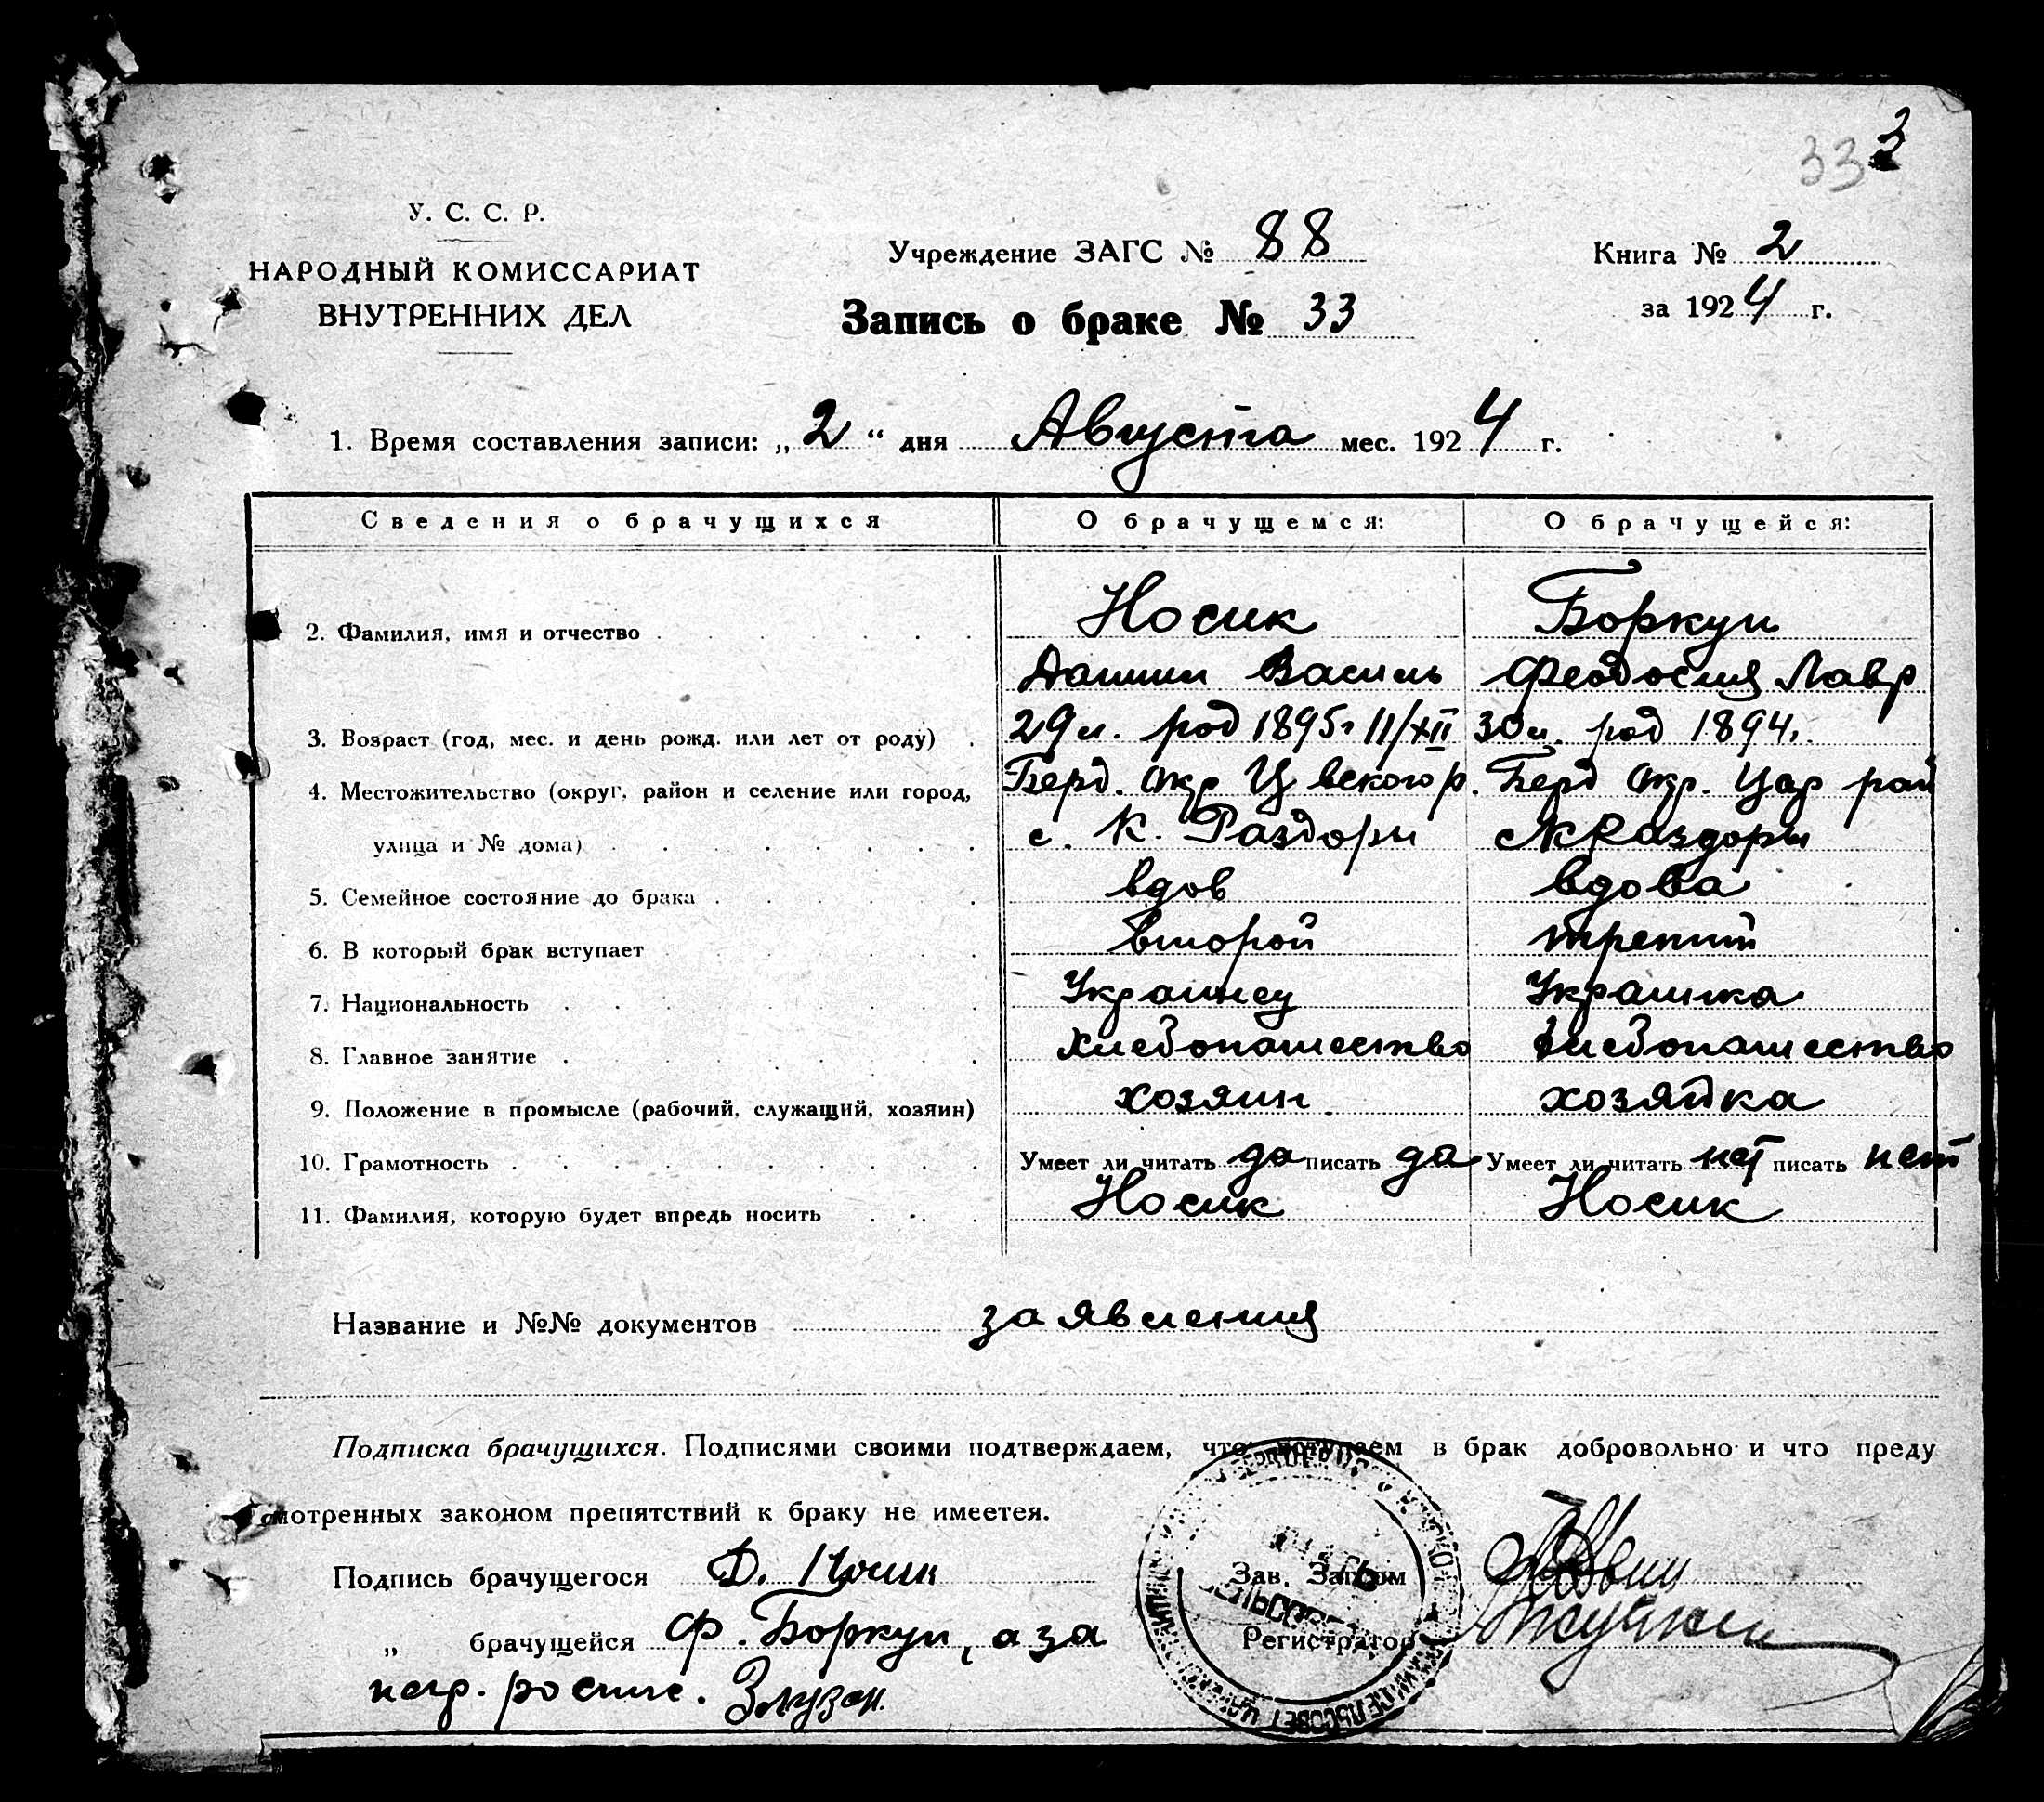 33 3
У. С. С. Р.
НАРОДНЫЙ КОМИССАРИАТ
ВНУТРЕННИХ ДЕЛ
Учреждение ЗАГС № 88
Книга № 2
Запись о браке № 33
за 1924 г.
1. Время составления записи: „2“ дня Августа мес. 1924 г.
Сведения о брачущихся О брачущемся: О брачущейся:
2. Фамилия, имя и отчество Носик Боркун
Даниил Василь Феодосия Лавр
3. Возраст (год, мес. и день рожд. или лет от роду) 29 л. род 1895 г 11/XII 30 л. род 1894 г.
4. Местожительство (округ, район и селение или город, Берд. Окр Ц вского р. Берд Окр. Цар рай
улица и № дома) с. К. Раздоры с К Раздоры
5. Семейное состояние до брака вдов вдова
6. В который брак вступает второй третий
7. Национальность Украинец Украинка
8. Главное занятие хлебопашество хлебопашество
9. Положение в промысле (рабочий, служащий, хозяин) хозяин хозяйка
10. Грамотность Умеет ли читать да писать да Умеет ли читать нет писать нет
11. Фамилия, которую будет впредь носить Носик Носик
Название и №№ документов заявления
Подписка брачущихся. Подписями своими подтверждаем, что вступаем в брак добровольно и что преду
смотренных законом препятствий к браку не имеется.
Подпись брачущегося Д. Носик Зав. Загсом
„ брачущейся Ф. Боркун, а за Регистратор
негр. роспис.